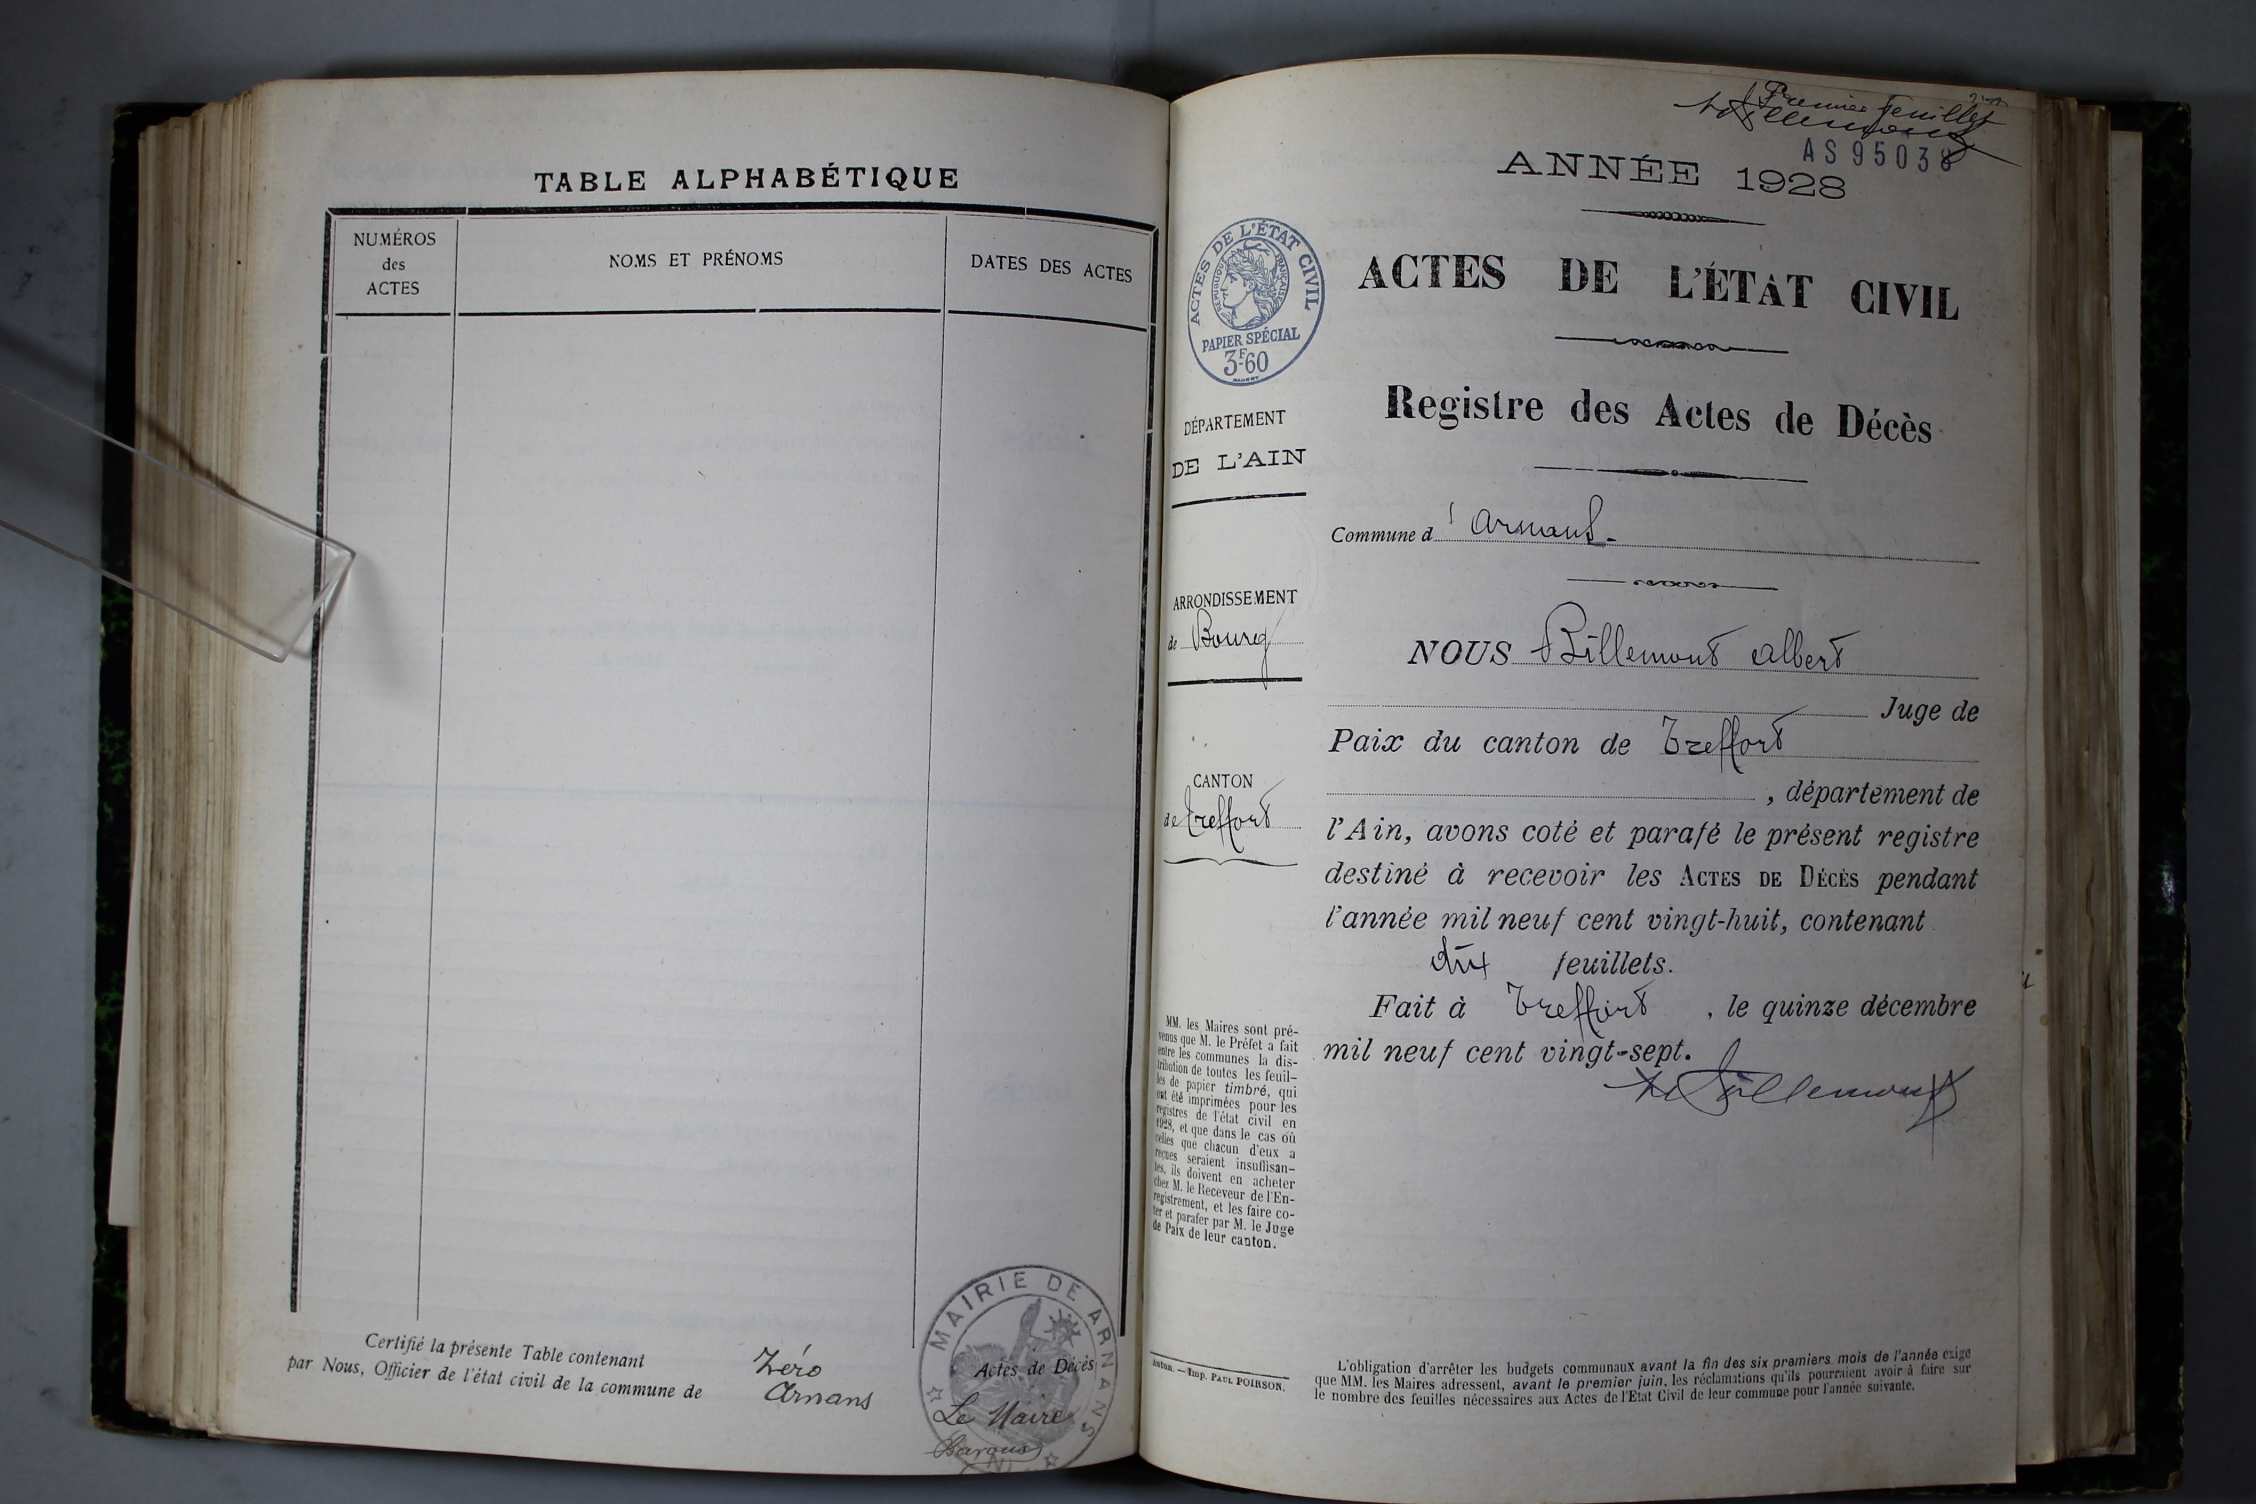 TABLE ALPHABÉTIQUE
NUMÉROS
des
ACTES
NOMS ET PRÉNOMS
DATES DES ACTES
Certifié la présente Table contenant Zéro Actes de Décès
par Nous, Officier de l'état civil de la commune de Arnans
Le Maire
MAIRIE DE ARNANS
Premier feuillet
AS 95038
ANNÉE 1928
ACTES DE L'ÉTAT CIVIL
RÉPUBLIQUE FRANÇAISE
PAPIER SPÉCIAL
3F60
ACTES DE L'ÉTAT CIVIL
Registre des Actes de Décès
DÉPARTEMENT
DE L'AIN
ARRONDISSEMENT
de Bourg
CANTON
de Treffort
MM. les Maires sont pré-
venus que M. le Préfet a fait
entre les communes la dis-
tribution de toutes les feuil-
les de papier timbré, qui
ont été imprimées pour les
registres de l'état civil en
1928, et que dans le cas où
celles que chacun d'eux a
reçues seraient insuffisan-
tes, ils doivent en acheter
chez M. le Receveur de l'En-
registrement, et les faire co-
ter et parafer par M. le Juge
de Paix de leur canton.
Imp. PAUL POIRSON.
Commune d'Arnans.
NOUS Billemont Albert
Juge de
Paix du canton de Treffort
, département de
l'Ain, avons coté et parafé le présent registre
destiné à recevoir les ACTES DE DÉCÈS pendant
l'année mil neuf cent vingt-huit, contenant
dix feuillets.
Fait à Treffort, le quinze décembre
mil neuf cent vingt-sept.
Billemont
L'obligation d'arrêter les budgets communaux avant la fin des six premiers mois de l'année exige
que MM. les Maires adressent, avant le premier juin, les réclamations qu'ils pourraient avoir à faire sur
le nombre des feuilles nécessaires aux Actes de l'Etat Civil de leur commune pour l'année suivante.